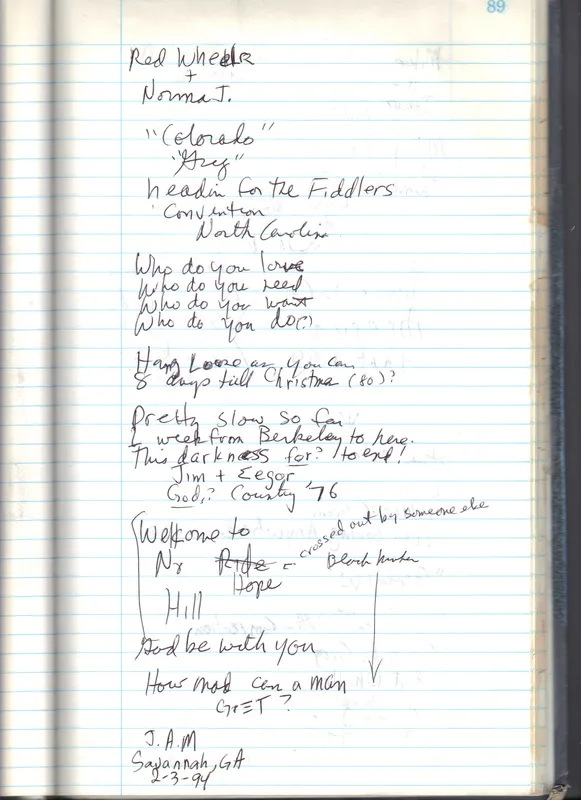 89
Red Wheelz
+
Norma J.
"Colorado"
"Greg"
headin for the Fiddlers
Convention
North Carolina
Who do you love
Who do you need
Who do you want
Who do you do(?)
Hang Loose as you can
8 days till Christmas (80)?
Pretty slow so far
1 week from Berkeley to here.
This darkness for? to end!
Jim + Eegor
God,? Country '76
Welkome to
Nr Ride - crossed out by someone else
Black
Hope
Hill
God be with you
How mad can a man
GET?
J.A.M
Savannah, GA
2-3-94